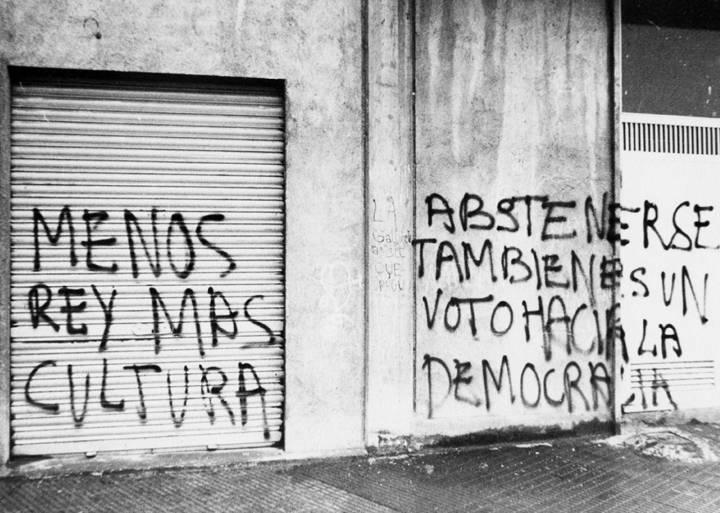 MENOS
REY MAS
CULTURA
LA
QUE
ABSTENERSE
TAMBIEN ES UN
VOTO HACIA LA
DEMOCRACIA